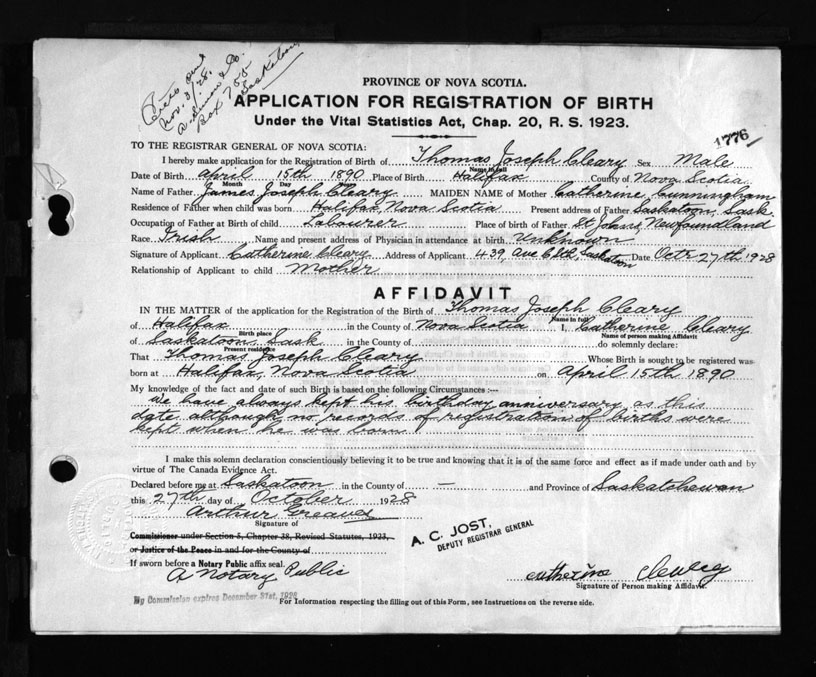 Nov. 3/28.
Box 755
Saskatoon
PROVINCE OF NOVA SCOTIA.
APPLICATION FOR REGISTRATION OF BIRTH
Under the Vital Statistics Act, Chap. 20, R. S. 1923.
1776
TO THE REGISTRAR GENERAL OF NOVA SCOTIA:
I hereby make application for the Registration of Birth of Thomas Joseph Cleary Sex Male
Name in full
Date of Birth April 15th 1890 Place of Birth Halifax County of Nova Scotia
Month Day Year
Name of Father James Joseph Cleary MAIDEN NAME of Mother Catherine Cunningham
Residence of Father when child was born Halifax Nova Scotia Present address of Father Saskatoon, Sask.
Occupation of Father at Birth of child Labourer Place of birth of Father St Johns, Newfoundland
Race Irish Name and present address of Physician in attendance at birth Unknown
Signature of Applicant Catherine Cleary Address of Applicant 439, Ave Sth, Saskatoon Date Octr 27th 1928
Relationship of Applicant to child Mother
AFFIDAVIT
IN THE MATTER of the application for the Registration of the Birth of Thomas Joseph Cleary
Name in full
of Halifax in the County of Nova Scotia I, Catherine Cleary
Birth place Name of person making Affidavit
of Saskatoon, Sask in the County of do solemnly declare:
Present residence
That Thomas Joseph Cleary Whose Birth is sought to be registered was
born at Halifax, Nova Scotia on April 15th 1890
My knowledge of the fact and date of such Birth is based on the following Circumstances :—
We have always kept his birthday anniversary as this
date although no records of registration of births were
kept when he was born
I make this solemn declaration conscientiously believing it to be true and knowing that it is of the same force and effect as if made under oath and by
virtue of The Canada Evidence Act.
Declared before me at Saskatoon in the County of — and Province of Saskatchewan
this 27th day of October 1928
Arthur Greaves
Signature of
Commissioner under Section 5, Chapter 38, Revised Statutes, 1923,
or Justice of the Peace in and for the County of
A. C. JOST,
DEPUTY REGISTRAR GENERAL
If sworn before a Notary Public affix seal.
A Notary Public
Catherine Cleary
Signature of Person making Affidavit.
My Commission expires December 31st, 1928
For Information respecting the filling out of this Form, see Instructions on the reverse side.